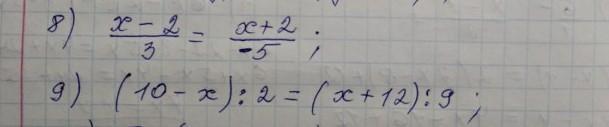 8) (x - 2)/3 = (x + 2)/-5 ;
9) (10 - x) : 2 = (x + 12) : 9 ;